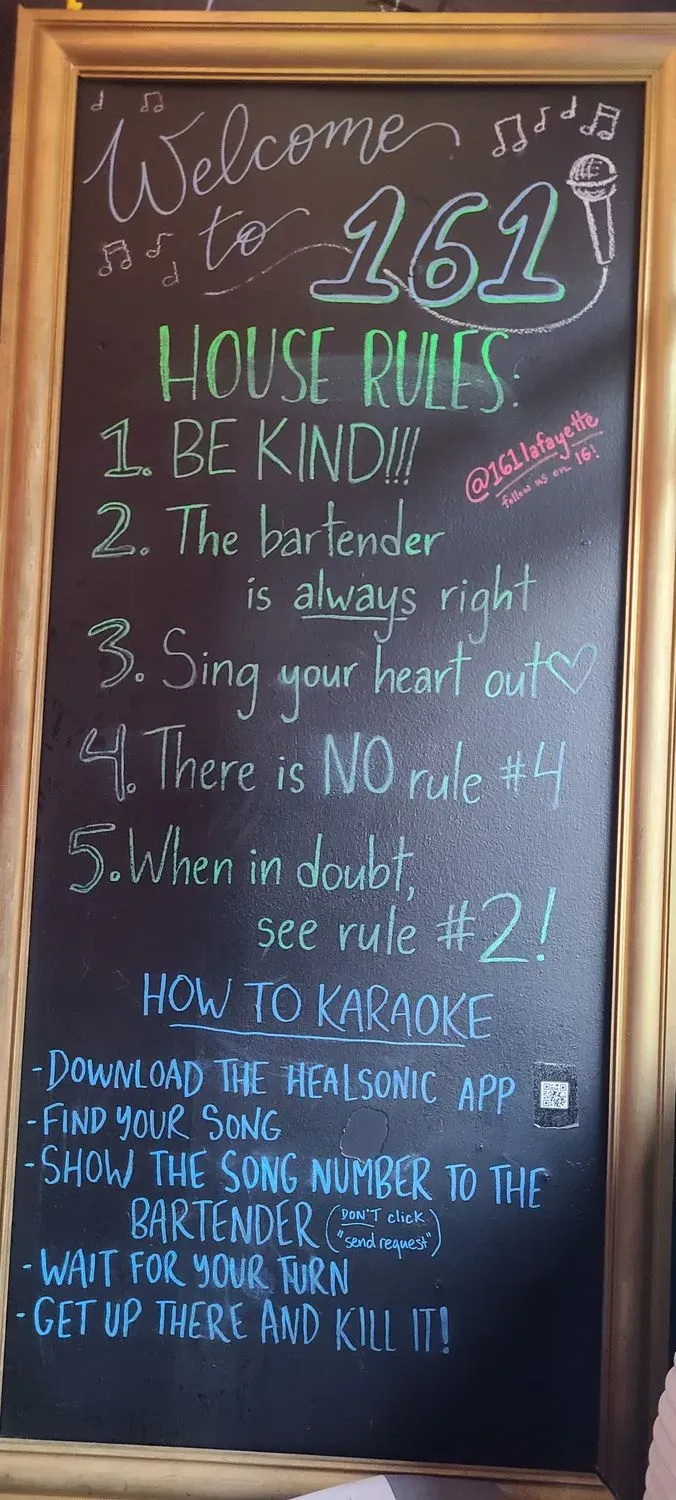 Welcome
to 161
HOUSE RULES:
1. BE KIND!!!
@161lafayette
follow us on IG!
2. The bartender
is always right
3. Sing your heart out♡
4. There is NO rule #4
5. When in doubt,
see rule #2!
HOW TO KARAOKE
-DOWNLOAD THE HEALSONIC APP
-FIND YOUR SONG
-SHOW THE SONG NUMBER TO THE
BARTENDER (DON'T click
"send request")
-WAIT FOR YOUR TURN
-GET UP THERE AND KILL IT!